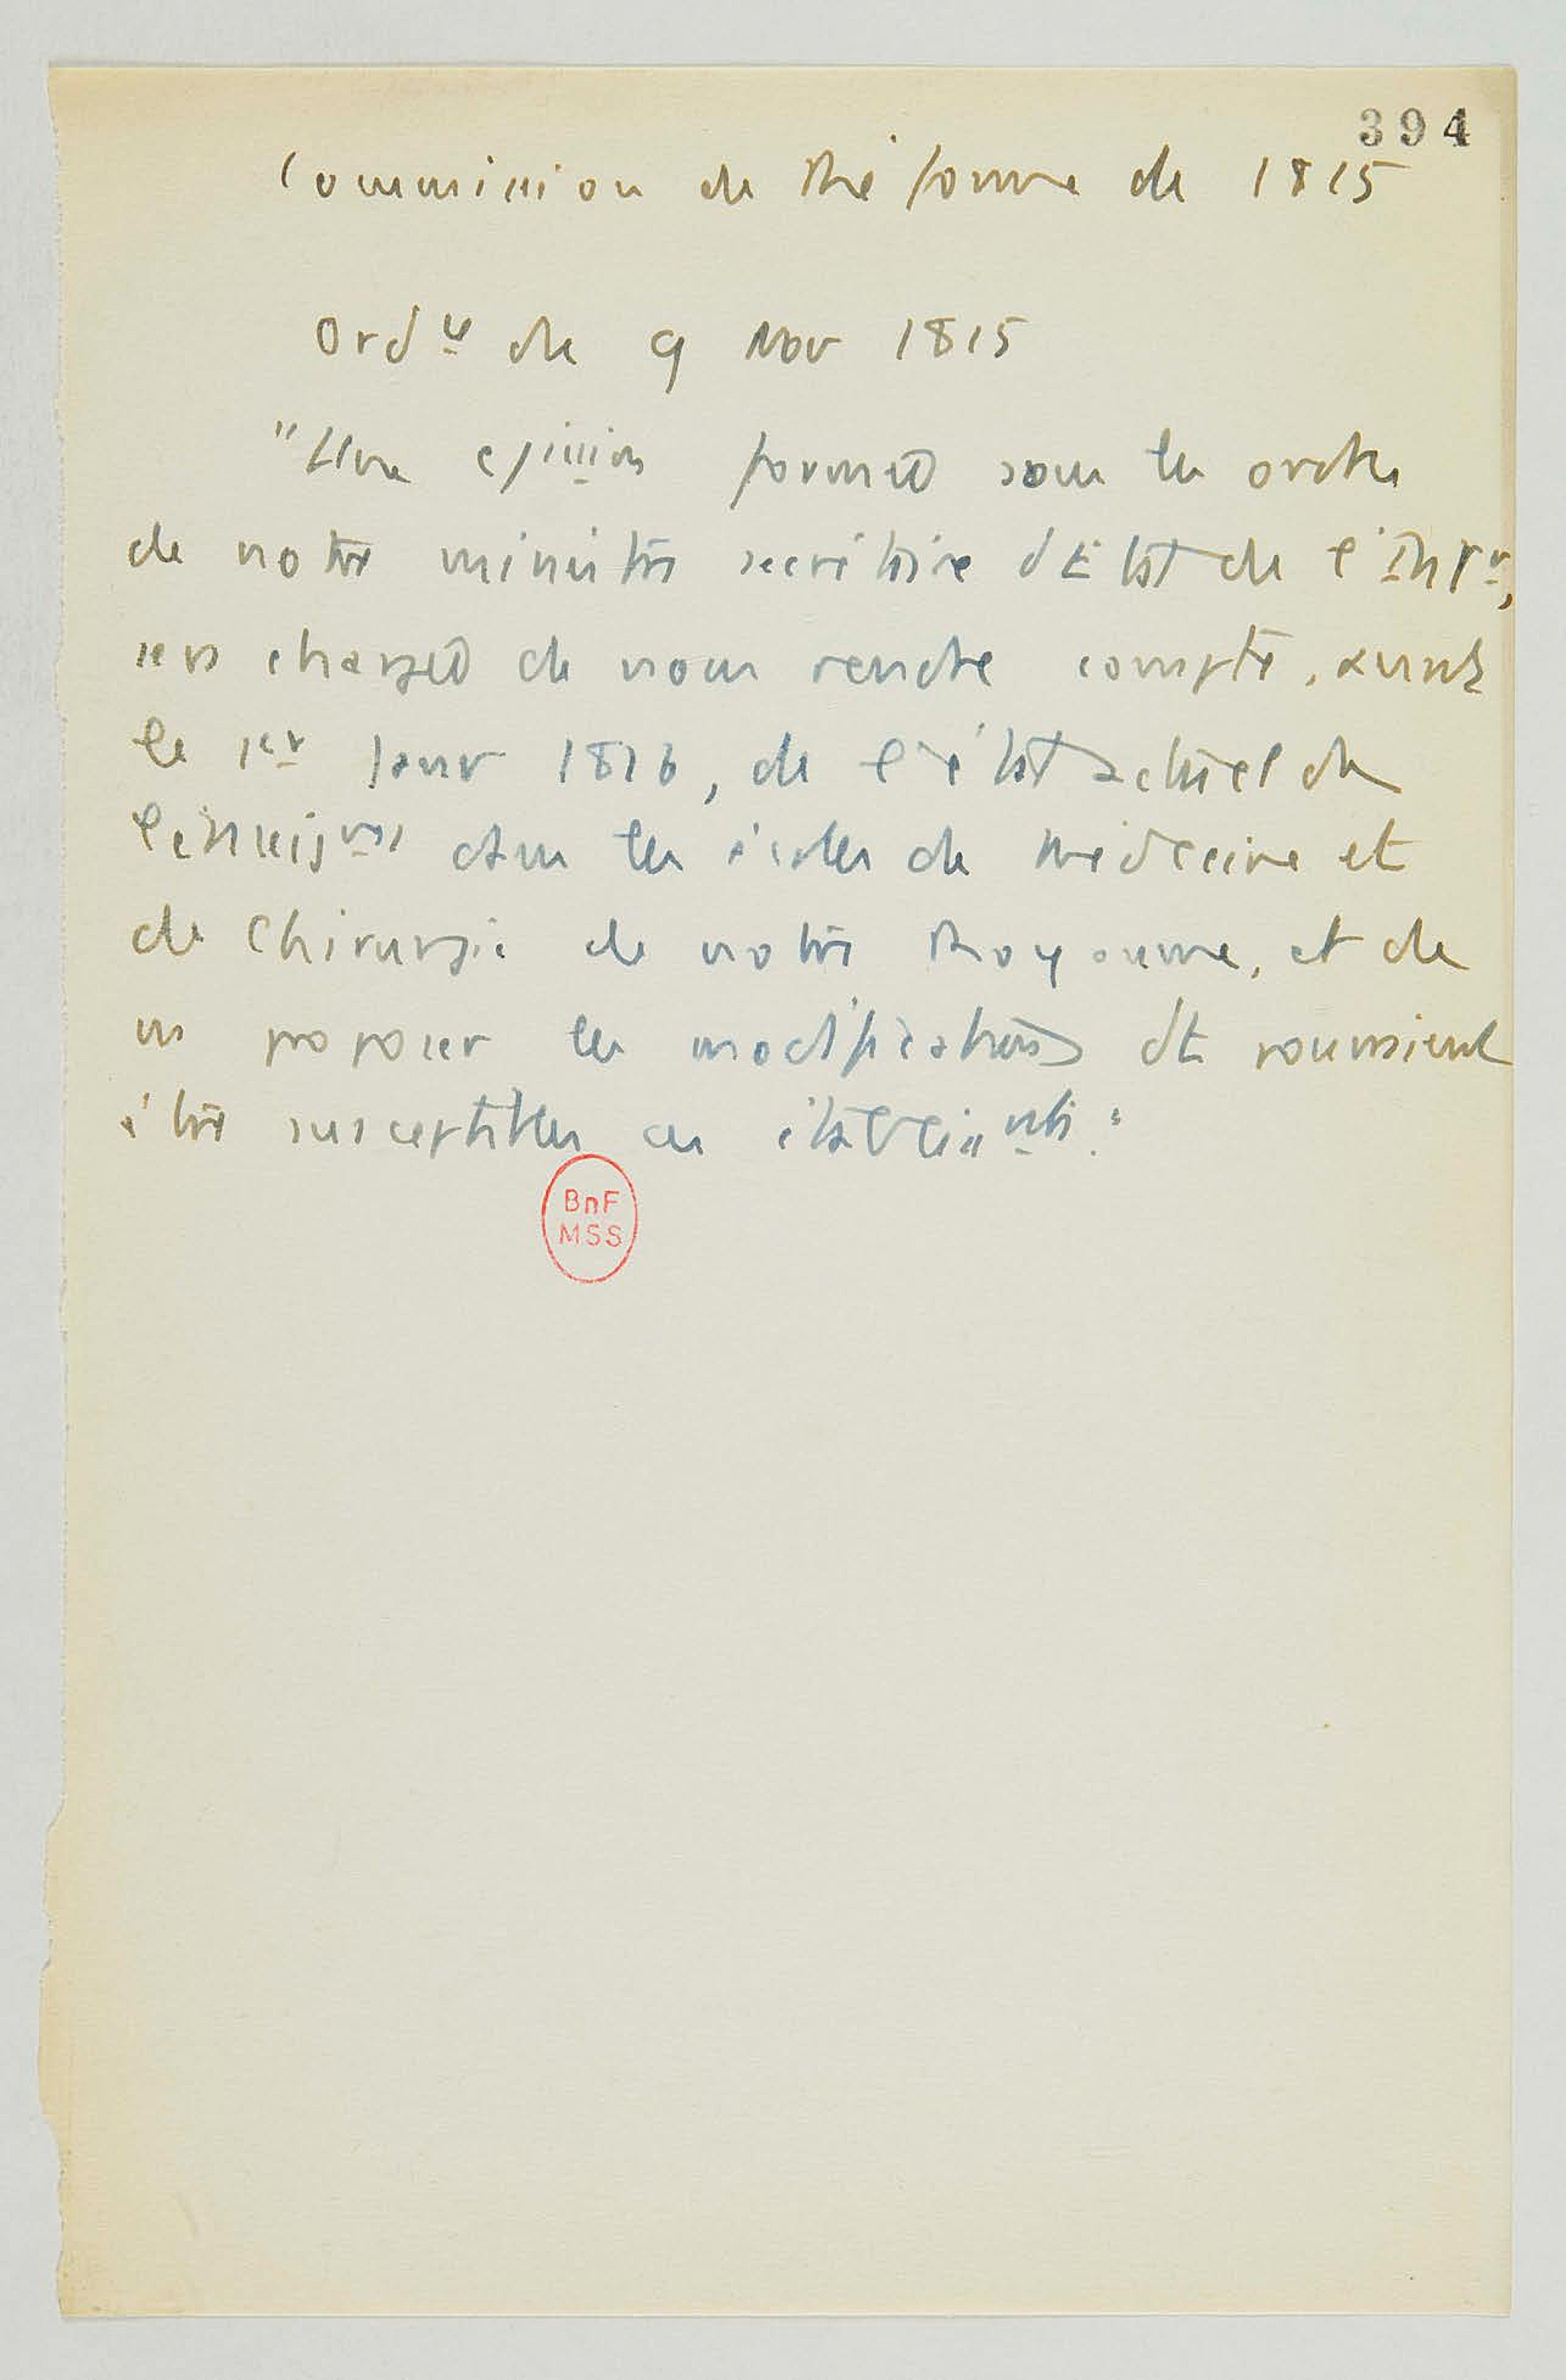 394
Commission de Réforme de 1815
Ordce de 9 Nov 1815
"Une cission formée sous les ordres
de notre ministre secrétaire d'Etat de l'Intr,
sera chargée de nous rendre compte, avant
le 1er Janv 1816, de l'état actuel de
l'enseignt dans les écoles de médecine et
de Chirurgie de notre Royaume, et de
ns proposer les modifications dt pourraient
être susceptibles ces établissmts."
BnF
MSS